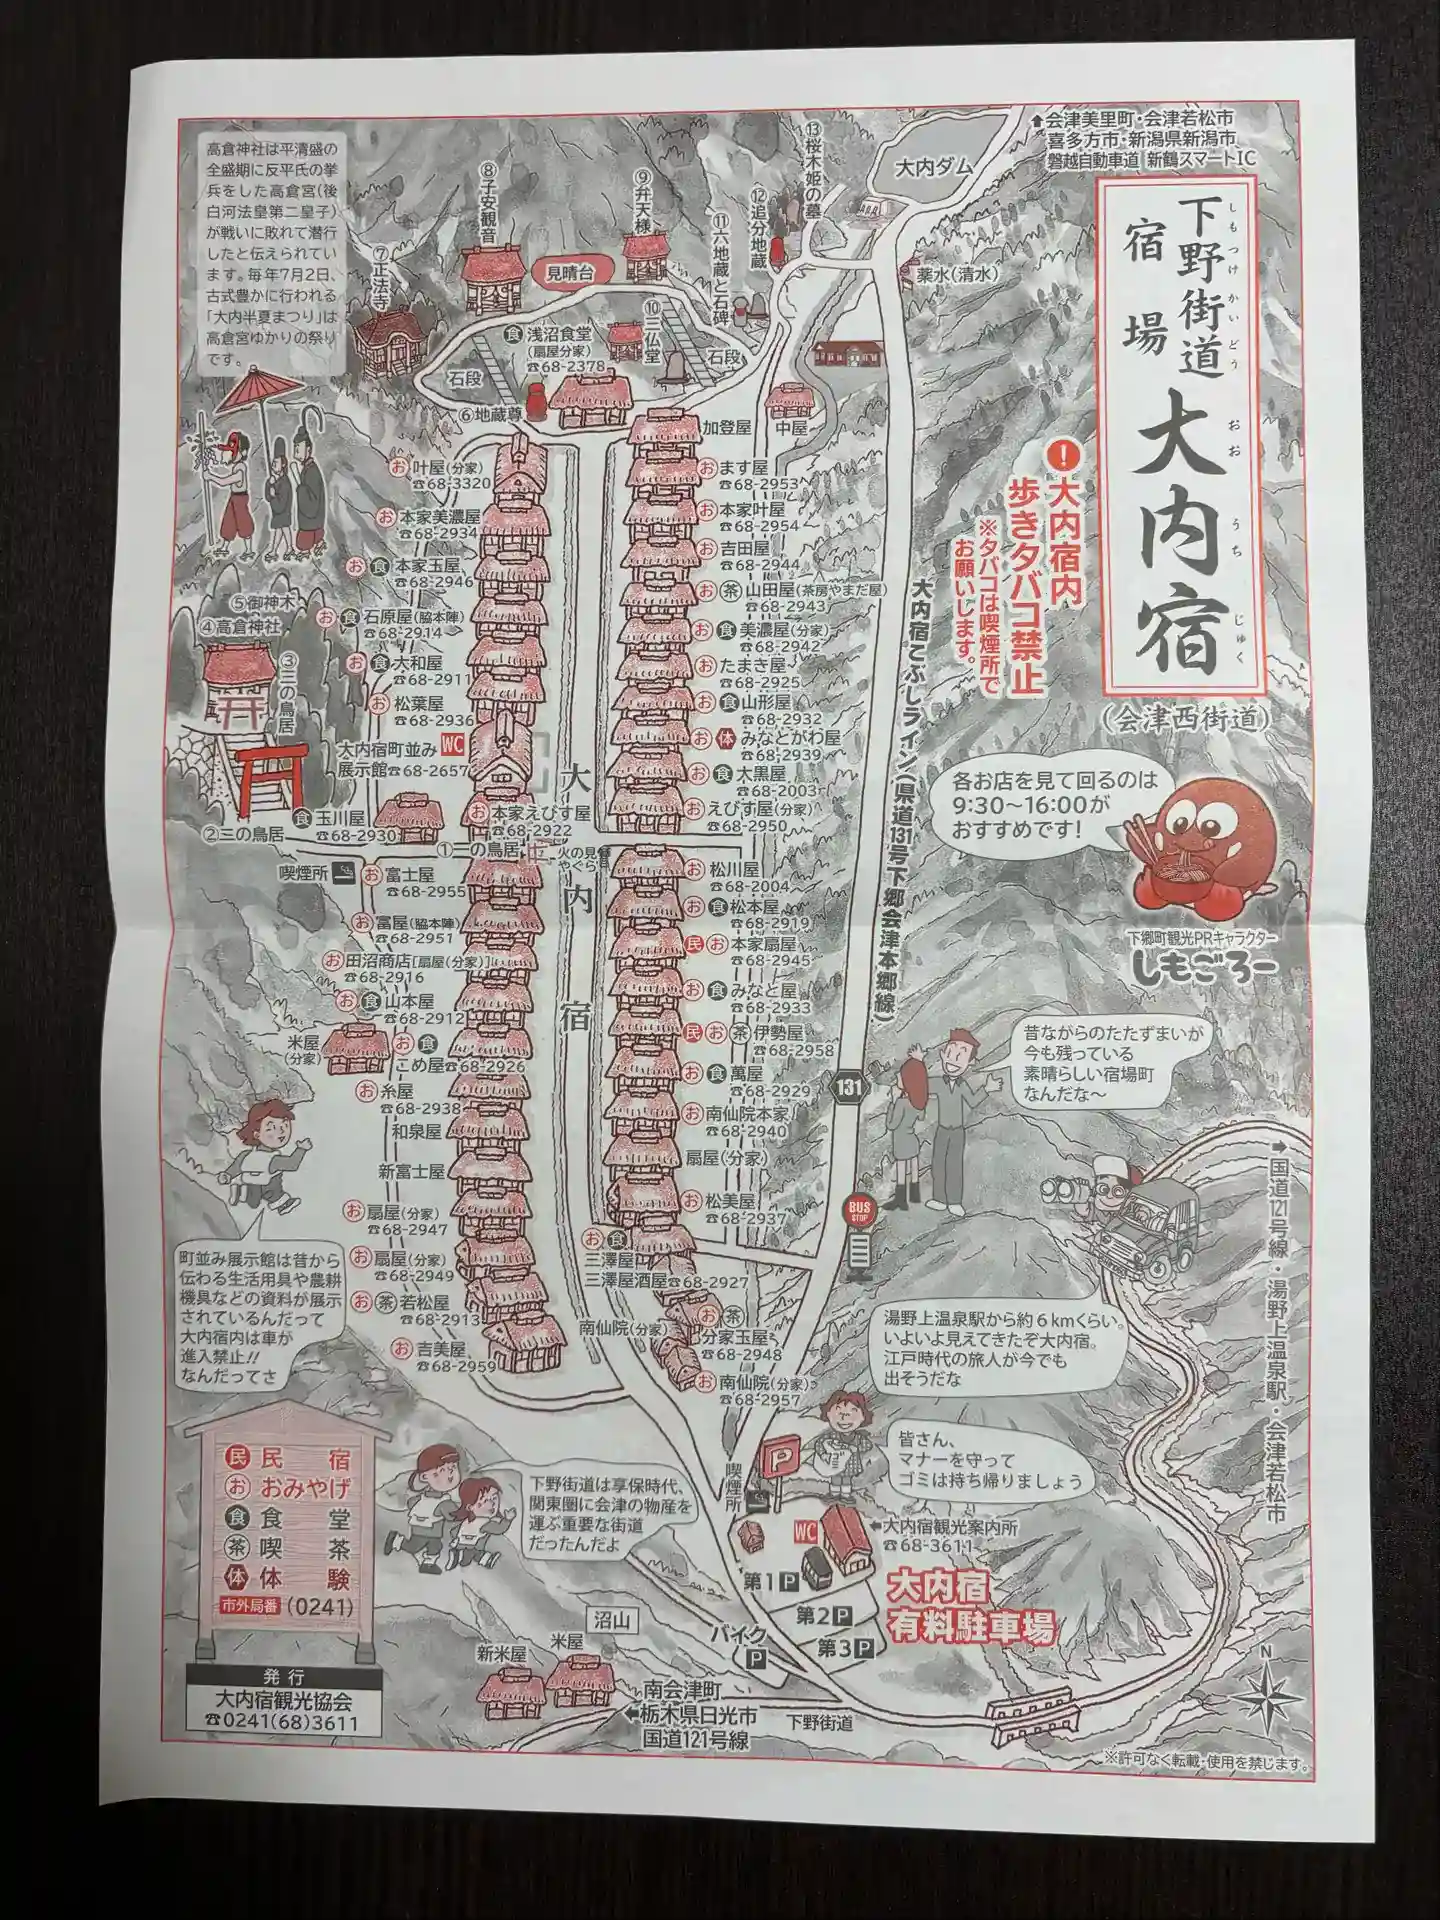 高倉神社は平清盛の
全盛期に反平氏の挙
兵をした高倉宮(後
白河法皇第二皇子)
が戦いに敗れて潜行
したと伝えられてい
ます。毎年7月2日、
古式豊かに行われる
「大内半夏まつり」は
高倉宮ゆかりの祭り
です。
⑦正法寺
⑧子安観音
見晴台
⑨弁天様
⑩三仏堂
⑪六地蔵と石碑
⑫追分地蔵
⑬桜木姫の墓
大内ダム
薬水(清水)
↑会津美里町・会津若松市
喜多方市・新潟県新潟市
磐越自動車道 新鶴スマートIC
下野街道
しもつけかいどう
宿場
大内宿
おおうちじゅく
(会津西街道)
!大内宿内
歩きタバコ禁止
※タバコは喫煙所で
お願いします。
食 浅沼食堂
(扇屋分家)
☎68-2378
石段
石段
⑥地蔵尊
中屋
お 叶屋(分家)
☎68-3320
お 本家美濃屋
☎68-2934
お 食 本家玉屋
☎68-2946
お 食 石原屋(脇本陣)
☎68-2914
お 食 大和屋
☎68-2911
お 松葉屋
☎68-2936
大内宿町並み WC
展示館☎68-2657
⑤御神木
④高倉神社
③三の鳥居
②二の鳥居
食 玉川屋
☎68-2930
お 本家えびす屋
☎68-2922
①一の鳥居
火の見
やぐら
喫煙所
お 富士屋
☎68-2955
お 富屋(脇本陣)
☎68-2951
お 田沼商店[扇屋(分家)]
☎68-2916
お 食 山本屋
☎68-2912
米屋
(分家)
お 食
こめ屋☎68-2926
お 糸屋
☎68-2938
和泉屋
新富士屋
お 扇屋(分家)
☎68-2947
お 扇屋(分家)
☎68-2949
お 茶 若松屋
☎68-2913
お 吉美屋
☎68-2959
大内宿
加登屋
お ます屋
☎68-2953
お 本家叶屋
☎68-2954
お 吉田屋
☎68-2944
お 茶 山田屋(茶房やまだ屋)
☎68-2943
お 食 美濃屋(分家)
☎68-2942
お たまき屋
☎68-2925
お 食 山形屋
☎68-2932
お 体 みなとがわ屋
☎68-2939
お 食 大黒屋
☎68-2003
お えびす屋(分家)
☎68-2950
お 松川屋
☎68-2004
お 食 松本屋
☎68-2919
民 お 本家扇屋
☎68-2945
お 食 みなと屋
☎68-2933
民 お 茶 伊勢屋
☎68-2958
お 食 萬屋
☎68-2929
お 南仙院本家
☎68-2940
扇屋(分家)
お 松美屋
☎68-2937
お 食
三澤屋
三澤屋酒屋☎68-2927
南仙院(分家)
お 茶
分家玉屋
☎68-2948
お 南仙院(分家)
☎68-2957
大内宿こぶしライン(県道131号下郷会津本郷線)
131
BUS
STOP
各お店を見て回るのは
9:30~16:00が
おすすめです!
下郷町観光PRキャラクター
しもごろー
昔ながらのたたずまいが
今も残っている
素晴らしい宿場町
なんだな~
→国道121号線・湯野上温泉駅・会津若松市
湯野上温泉駅から約6kmくらい。
いよいよ見えてきたぞ大内宿。
江戸時代の旅人が今でも
出そうだな
皆さん、
マナーを守って
ゴミは持ち帰りましょう
町並み展示館は昔から
伝わる生活用具や農耕
機具などの資料が展示
されているんだって
大内宿内は車が
進入禁止!!
なんだってさ
下野街道は享保時代、
関東圏に会津の物産を
運ぶ重要な街道
だったんだよ
喫煙所
P
WC
←大内宿観光案内所
☎68-3611
第1P
第2P
第3P
大内宿
有料駐車場
バイク
P
沼山
新米屋
米屋
南会津町
←栃木県日光市
国道121号線
下野街道
N
民 民宿
お おみやげ
食 食堂
茶 喫茶
体 体験
市外局番 (0241)
発行
大内宿観光協会
☎0241(68)3611
※許可なく転載・使用を禁じます。